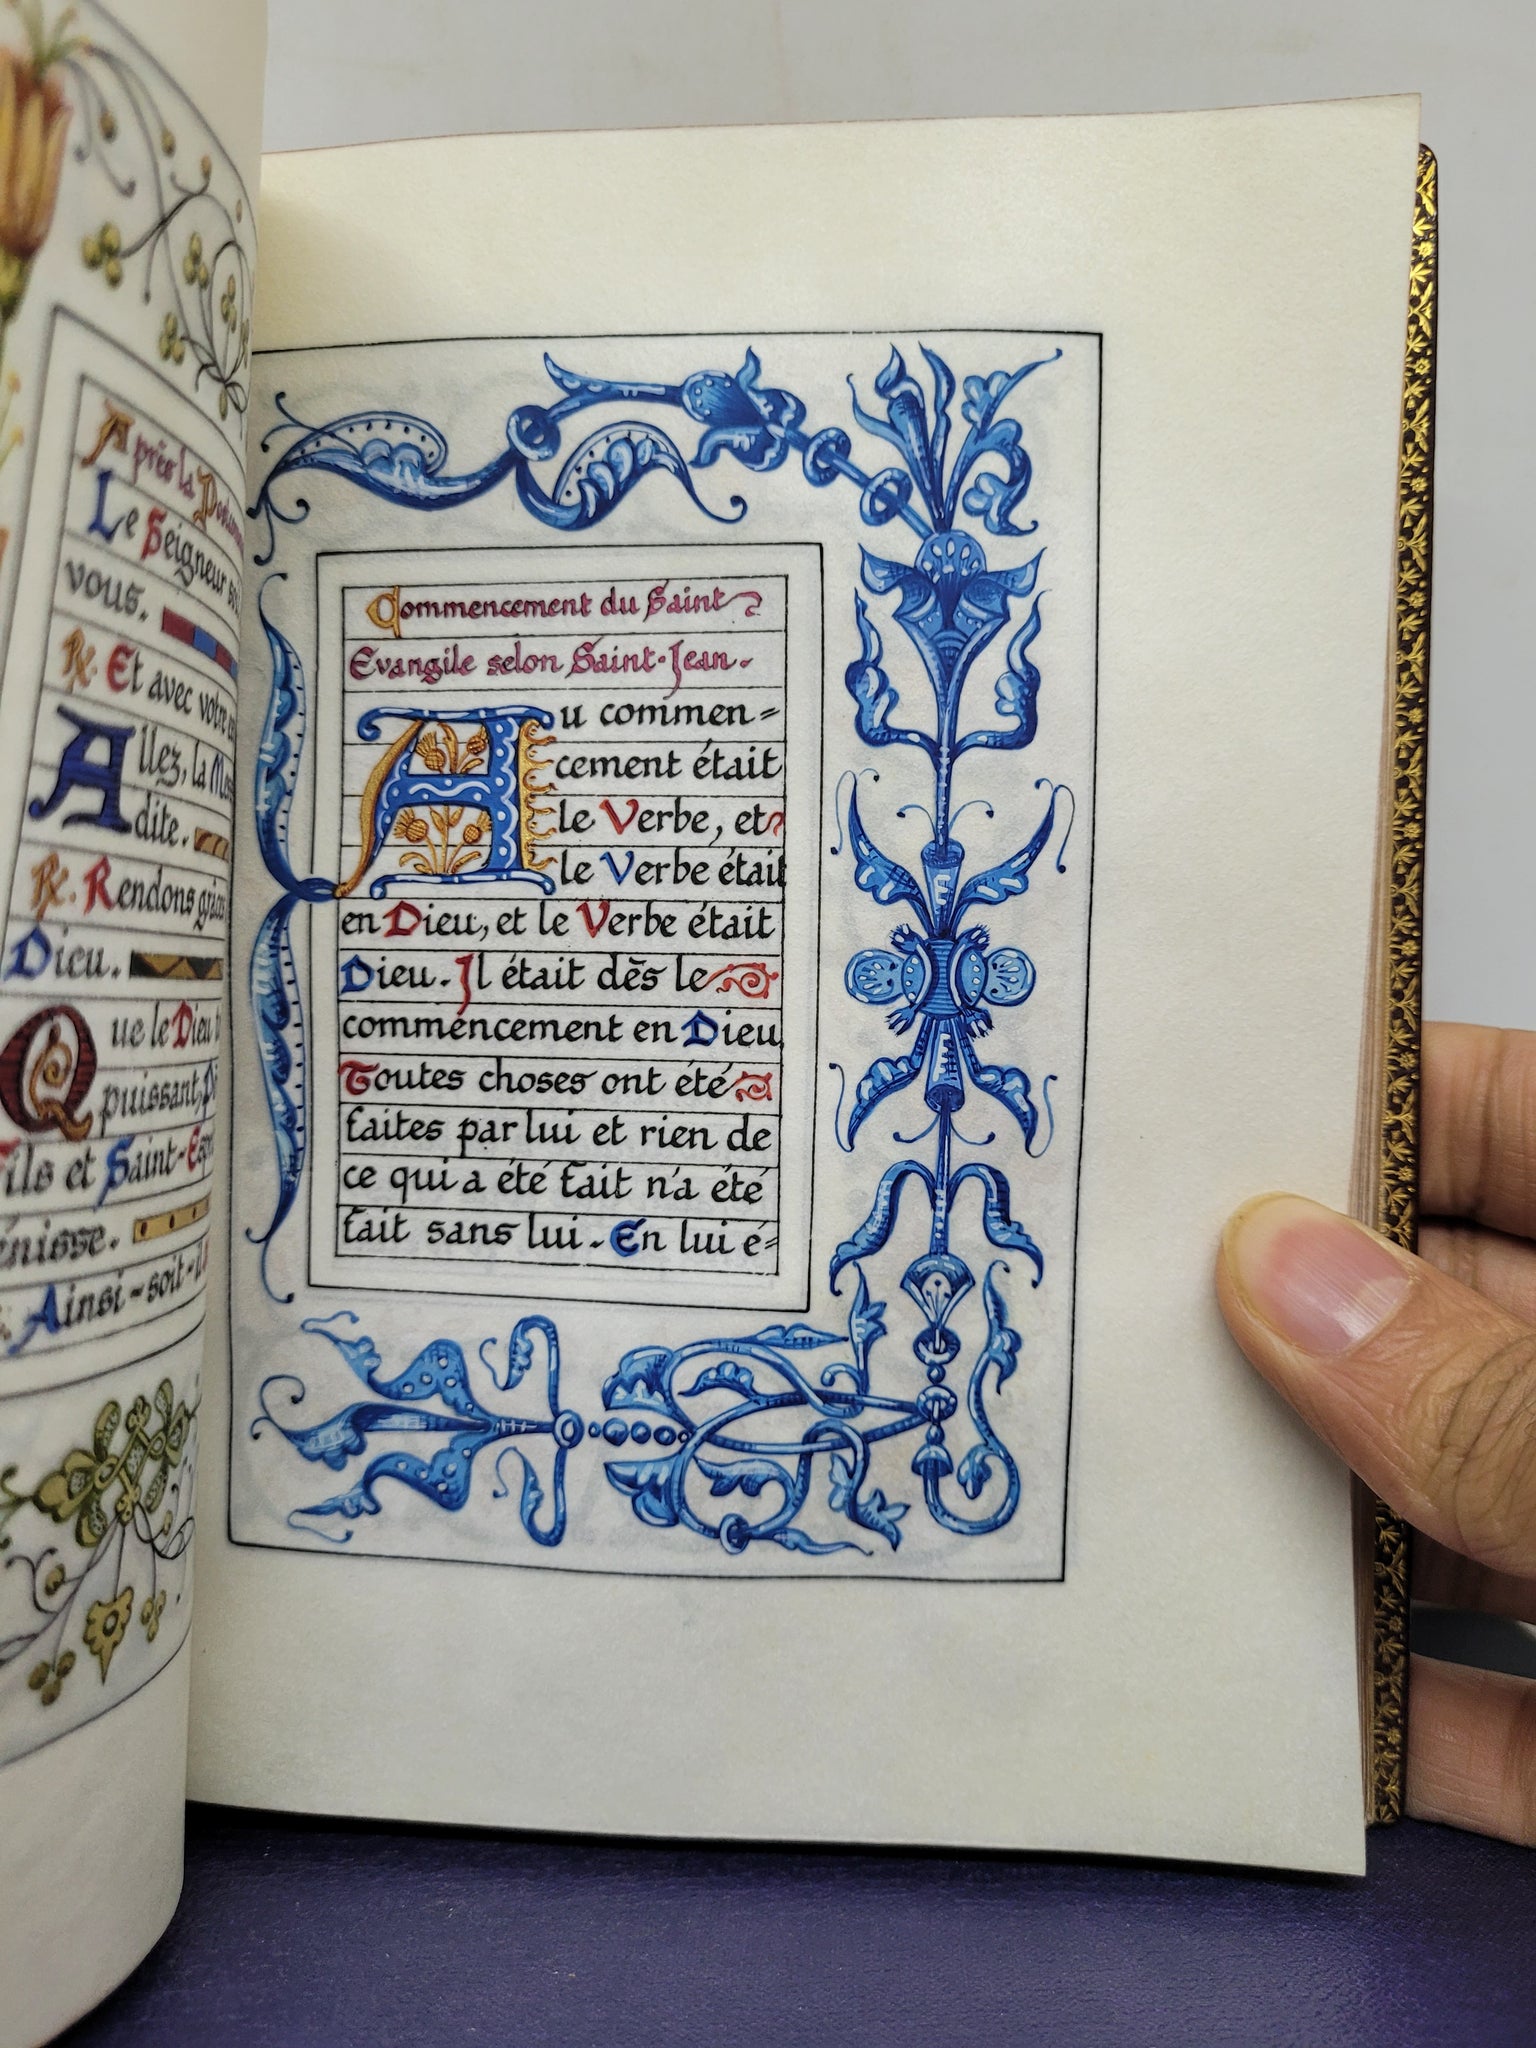 Après la
Le Seigneur soit
vous.
℟. Et avec votre
Allez, la
dite.
℟. Rendons grâces
Dieu.
Que le Dieu
puissant,
Fils et Saint-Esprit
énisse.
Ainsi-soit-il
Commencement du Saint
Evangile selon Saint-Jean.
Au commen=
cement était
le Verbe, et
le Verbe était
en Dieu, et le Verbe était
Dieu. Il était dès le
commencement en Dieu,
Toutes choses ont été
faites par lui et rien de
ce qui a été fait n'a été
fait sans lui. En lui é=